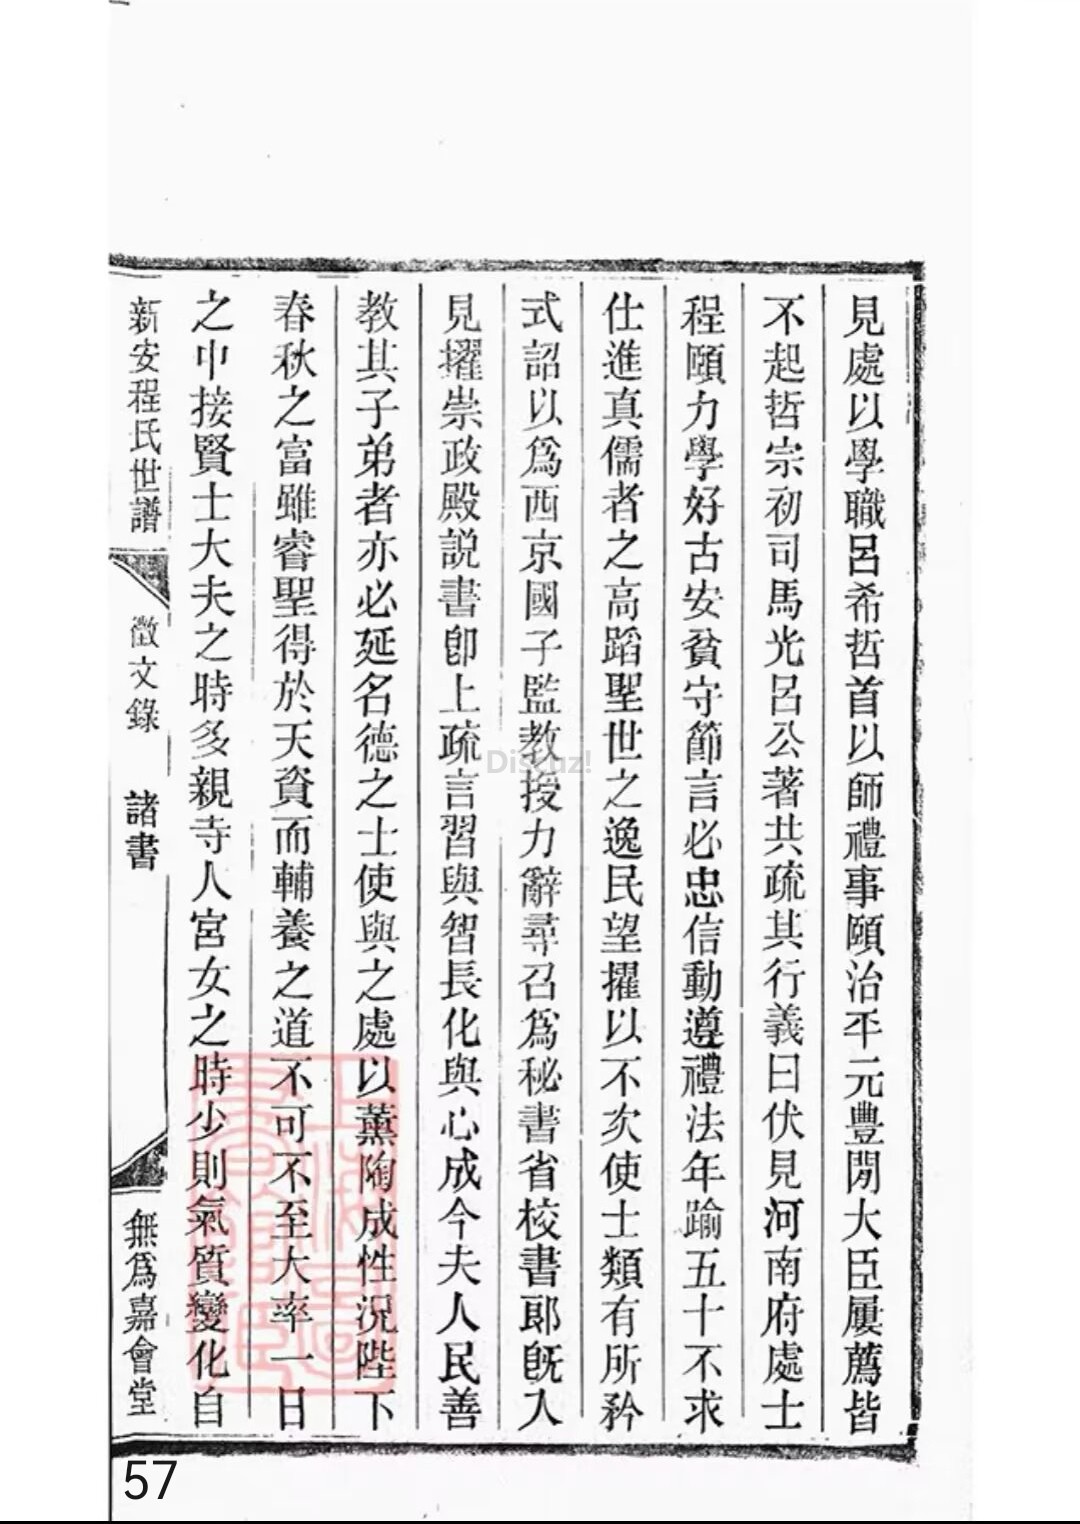 見處以學職呂希哲首以師禮事頤治平元豐閒大臣屢薦皆
不起哲宗初司馬光呂公著共疏其行義曰伏見河南府處士
程頤力學好古安貧守節言必忠信動遵禮法年踰五十不求
仕進真儒者之高蹈聖世之逸民望擢以不次使士類有所矜
式詔以爲西京國子監教授力辭尋召爲秘書省校書郎旣入
見擢崇政殿説書卽上疏言習與智長化與心成今夫人民善
教其子弟者亦必延名德之士使與之處以薰陶成性況陛下
春秋之富雖睿聖得於天資而輔養之道不可不至大率一日
之中接賢士大夫之時多親寺人宮女之時少則氣質變化自
新安程氏世譜
徵文錄
諸書
無爲嘉會堂
Discuz!
57